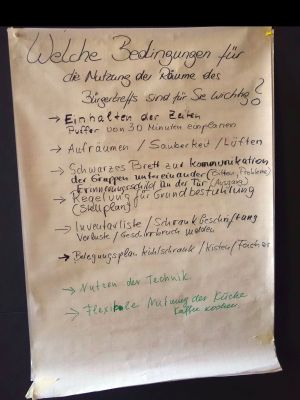 Welche Bedingungen für
die Nutzung der Räume des
Bürgertreffs sind für Sie wichtig?
→ Einhalten der Zeiten
Puffer von 30 Minuten einplanen
→ Aufräumen / Sauberkeit / Lüften
→ Schwarzes Brett zur Kommunikation
der Gruppen untereinander (Bitten, Probleme)
Erinnerungsschild An der Tür (Ausgang)
→ Regelung für Grundbestuhlung
(Stellplan)
→ Inventarliste / Schrank Beschriftung
Verluste / Geschirrbruch melden
→ Belegungsplan Kühlschrank / Kisten / Fächer
→ Nutzen der Technik
→ Flexible Nutzung der Küche
Kaffee kochen